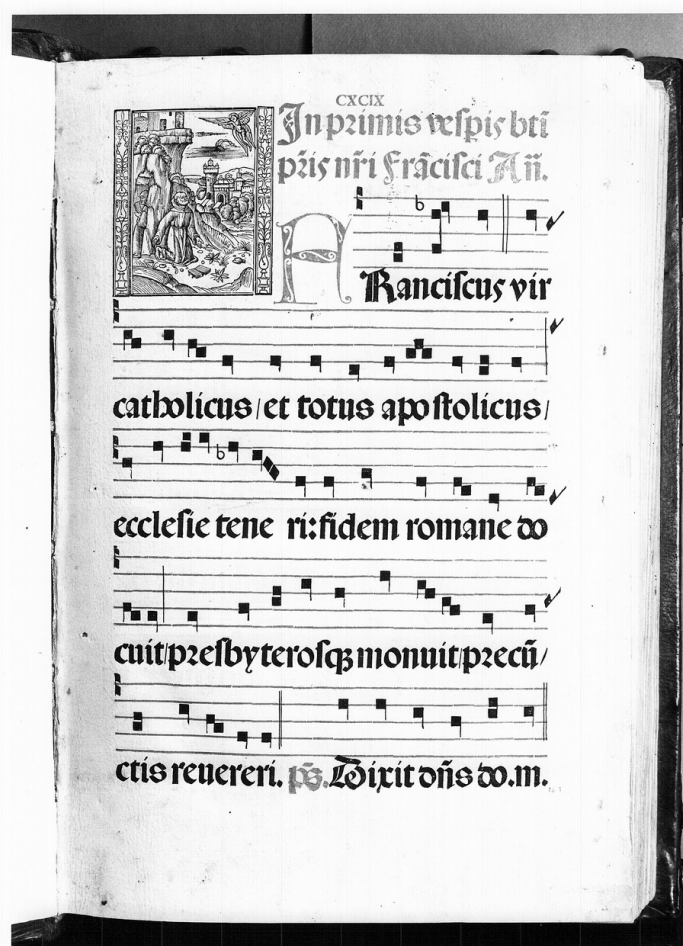 CXCIX
In pꝛimis veſpis bti̅
pꝛ̅is nr̅i Frāciſci An̅.
FRanciſcus vir
catholicus / et totus apo ſtolicus /
eccleſie tene ri: fidem romane do
cuit / pꝛeſbyteroſqꝫ monuit / pꝛecu̅ /
ctis reuereri. ps̅. Dixit dn̅s do. m.